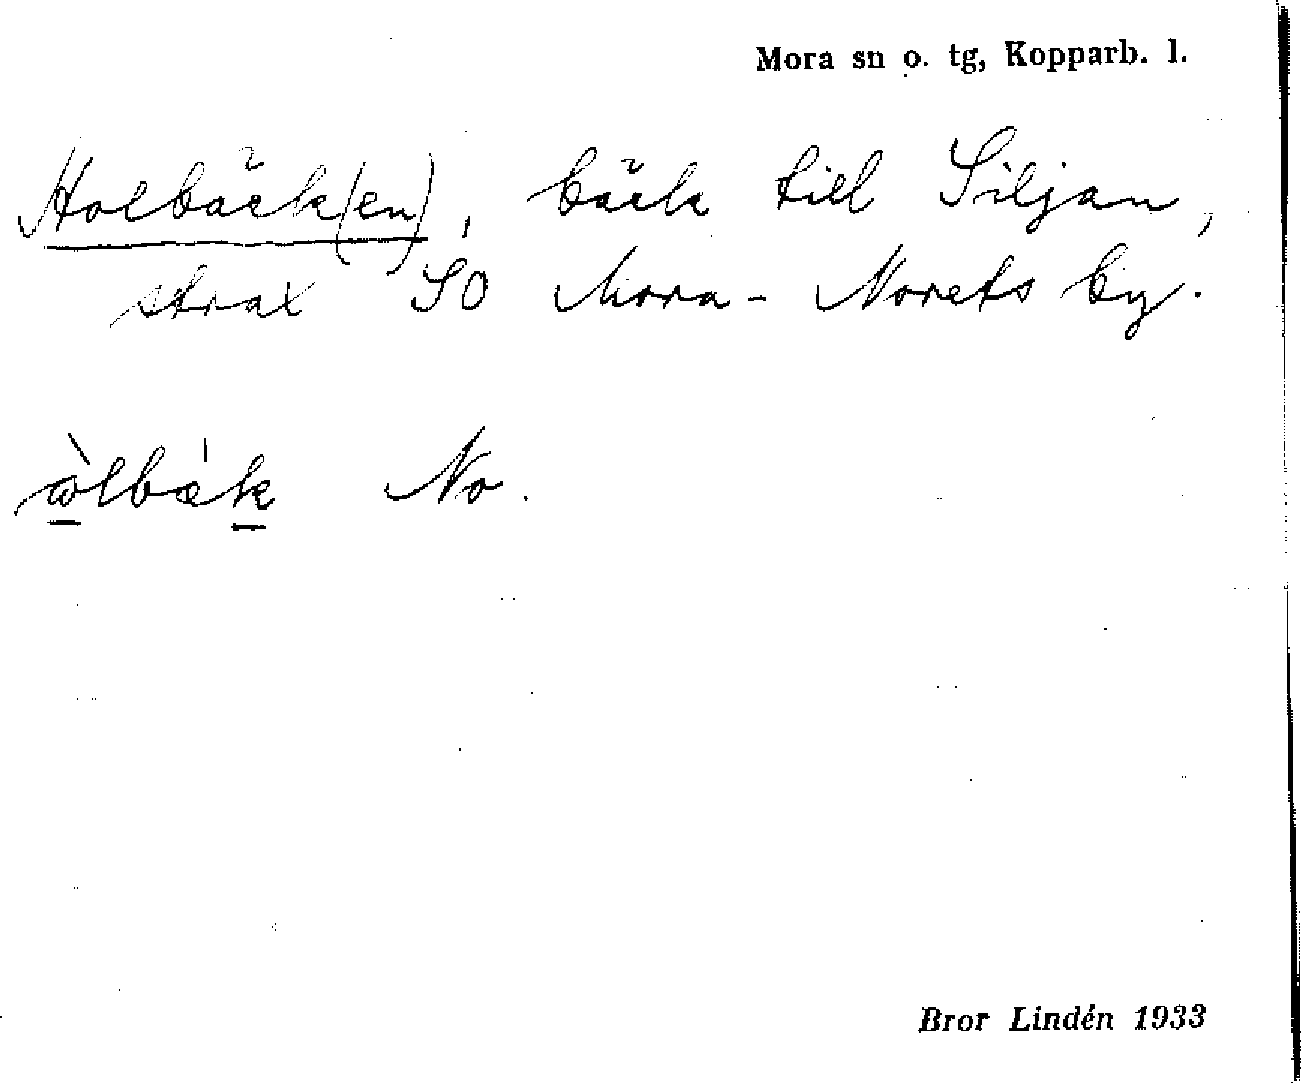 Mora sn o. tg, Kopparb. l.
Holbäck(en), bäck till Siljan,
strax SO Mora-Norets by.
No.
Bror Lindén 1933